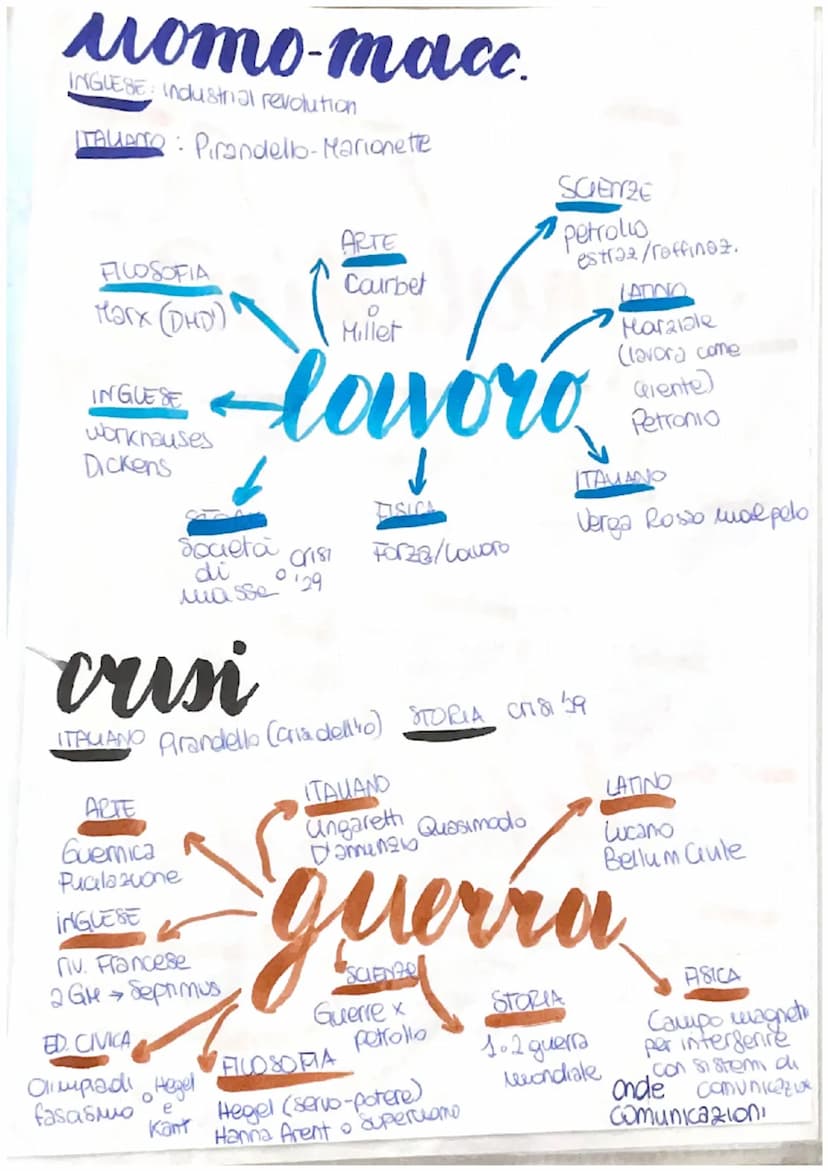 uomo-macc.
INGLESE: Industrial revolution
ITALIANO: Pirandello-Marionette
SCIENZE
petrolio
estraz/raffinaz.
ARTE
Courbet
o
Millet
FILOSOFIA
Marx (DHD')
LATINO
Marziale
(lavora come
cliente)
Petronio
lavoro
INGLESE
workhouses
Dickens
ITALIANO
Verga Rosso malpelo
STORIA
Società
di
masse o crisi
'29
FISICA
Forza/Lavoro
crisi
ITALIANO Pirandello (crisi dell'io) STORIA crisi '29
ARTE
Guernica
Fucilazione
ITALIANO
Ungaretti Quasimodo
D'annunzio
LATINO
Lucano
Bellum Civile
guerra
INGLESE
riv. Francese
2 GM → Septimus
SCIENZE
Guerre x
petrolio
STORIA
1 o 2 guerra
mondiale
FISICA
Campo magneti
per interferire
con sistemi di
onde
comunicazioni
ED. CIVICA
Olimpiadi o Hegel
fascismo e
Kant
FILOSOFIA
Hegel (servo-potere)
Hanna Arent o superuomo